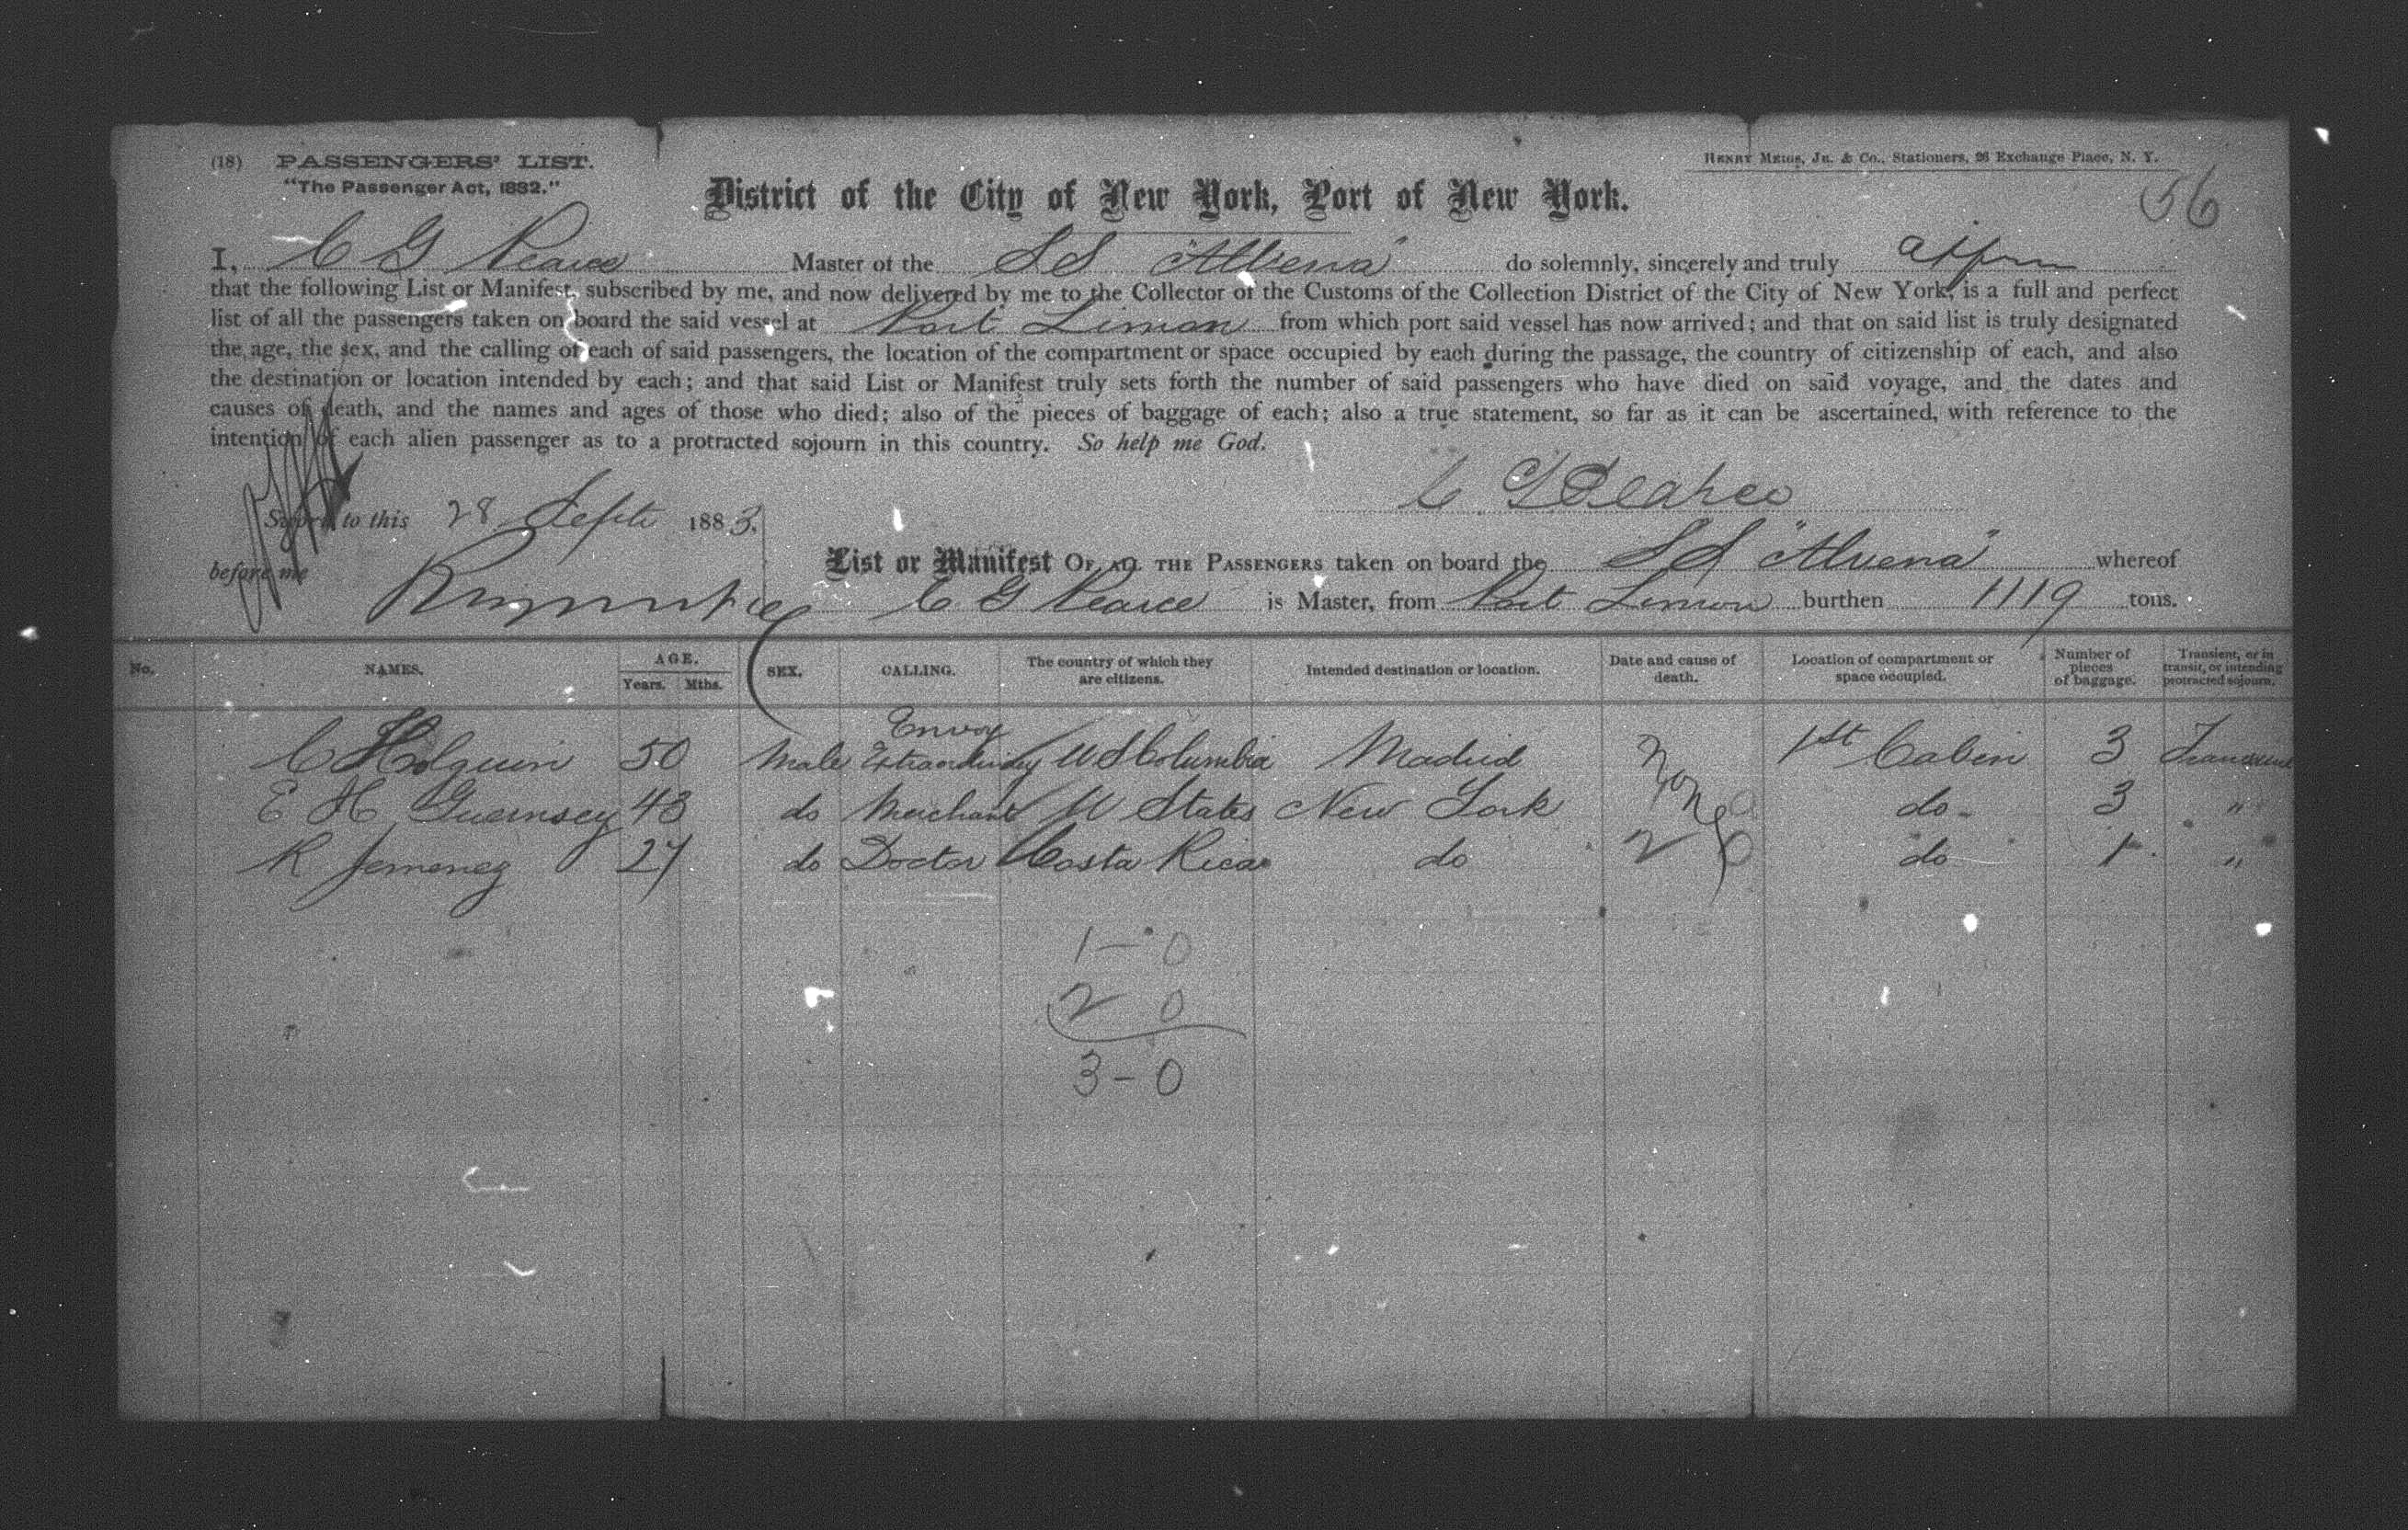 (18) PASSENGERS' LIST.
"The Passenger Act, 1882."
HENRY MEIGS, JR. & CO., Stationers, 26 Exchange Place, N. Y.
56
District of the City of New York, Port of New York.
I, C G Pearce Master of the SS "Alvena" do solemnly, sincerely and truly affirm
that the following List or Manifest, subscribed by me, and now delivered by me to the Collector of the Customs of the Collection District of the City of New York, is a full and perfect
list of all the passengers taken on board the said vessel at Port Limon from which port said vessel has now arrived; and that on said list is truly designated
the age, the sex, and the calling of each of said passengers, the location of the compartment or space occupied by each during the passage, the country of citizenship of each, and also
the destination or location intended by each; and that said List or Manifest truly sets forth the number of said passengers who have died on said voyage, and the dates and
causes of death, and the names and ages of those who died; also of the pieces of baggage of each; also a true statement, so far as it can be ascertained, with reference to the
intention of each alien passenger as to a protracted sojourn in this country. So help me God.
C G Pearce
Sworn to this 28 Septr 1883.
before me
List or Manifest OF ALL THE PASSENGERS taken on board the SS "Alvena" whereof
C G Pearce is Master, from Port Limon burthen 1119 tons.
No. NAMES. AGE. Years. Mths. SEX. CALLING. The country of which they are citizens. Intended destination or location. Date and cause of death. Location of compartment or space occupied. Number of pieces of baggage. Transient, or in transit, or intending protracted sojourn.
C Holguin 50 Male Envoy Extraordinary U S Columbia Madrid None 1st Cabin 3 Transient
E H Guernsey 43 do Merchant U States New York do 3 "
R Jemenez 27 do Doctor Costa Rica do do 1 "
1 - 0
2 0
3 - 0